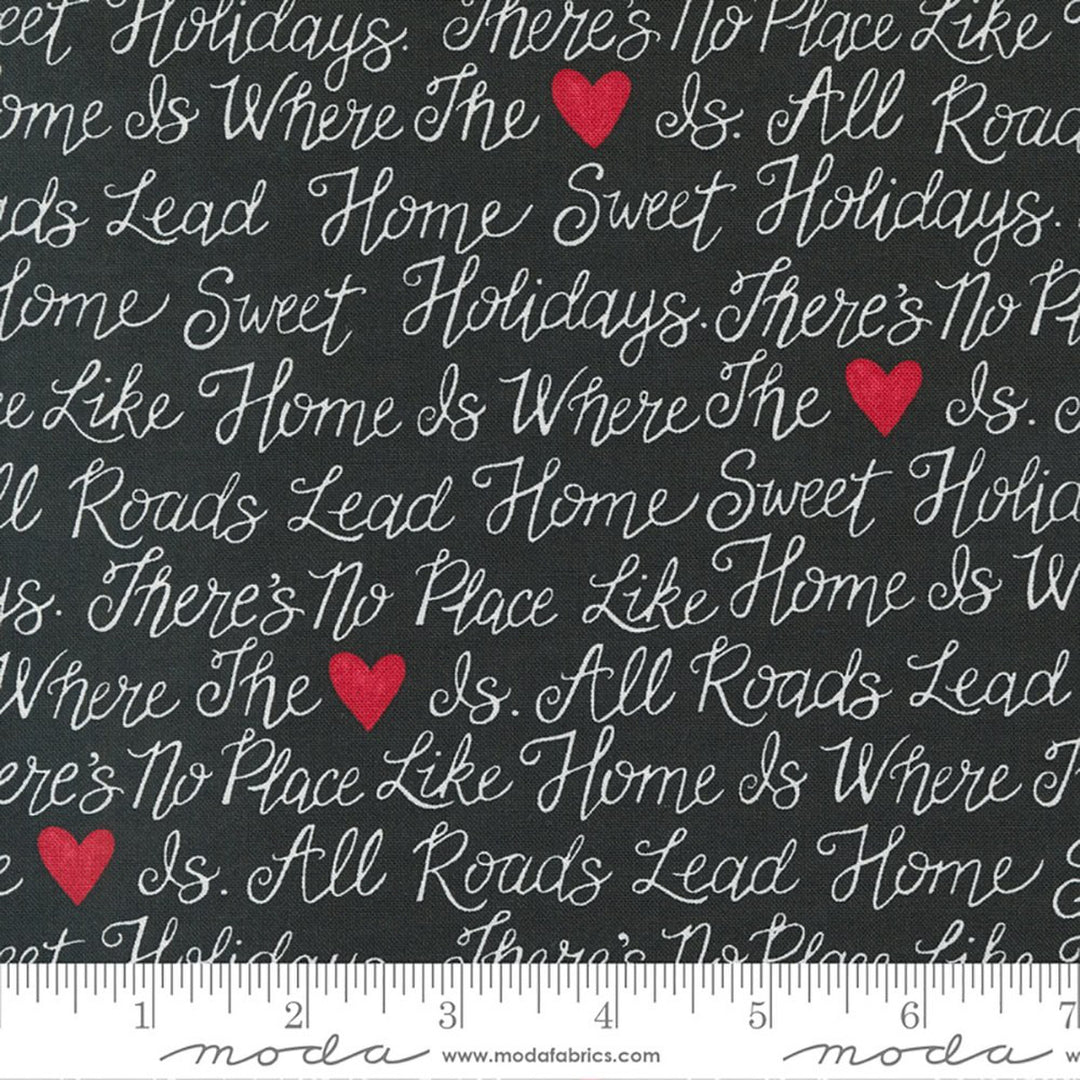 eet Holidays. There's No Place Like
ome Is Where The Is. All Road
ads Lead Home Sweet Holidays.
Home Sweet Holidays. There's No Pl
e Like Home Is Where The Is.
ll Roads Lead Home Sweet Holida
ys. There's No Place Like Home Is W
Where The Is. All Roads Lead
ere's No Place Like Home Is Where T
e Is. All Roads Lead Home S
eet Holidays There's No Place Like
1 2 3 4 5 6 7
moda www.modafabrics.com moda w